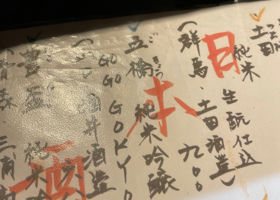 土田
純米 生酛仕込
(群馬・土田酒造) 900
五橋 純米吟醸
GO GO GOKYO
酒井酒造
豊盃 純米吟
日本酒